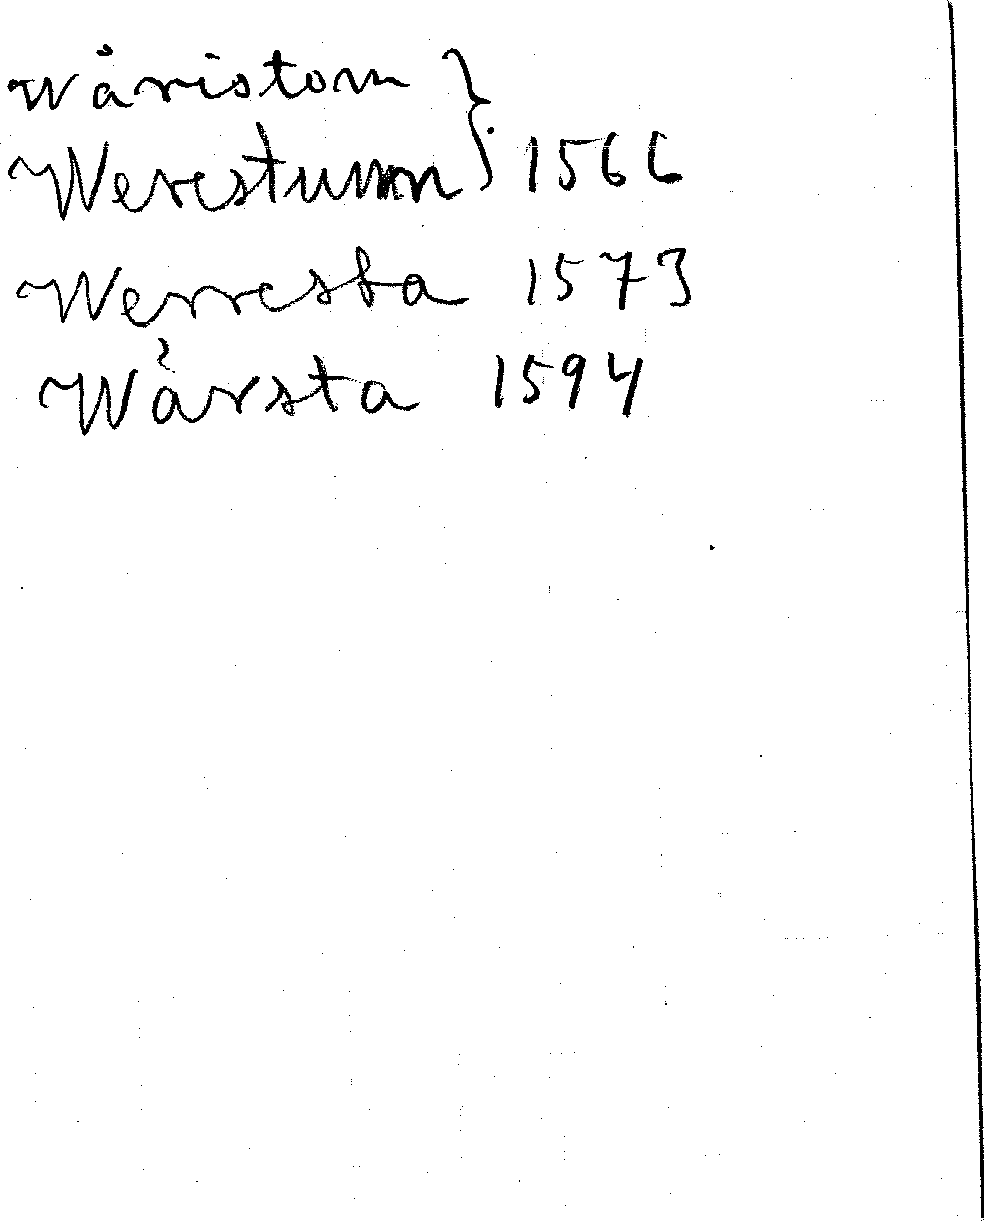 Wåristom
Werestumn } 1566
Werresta 1573
Wårsta 1594